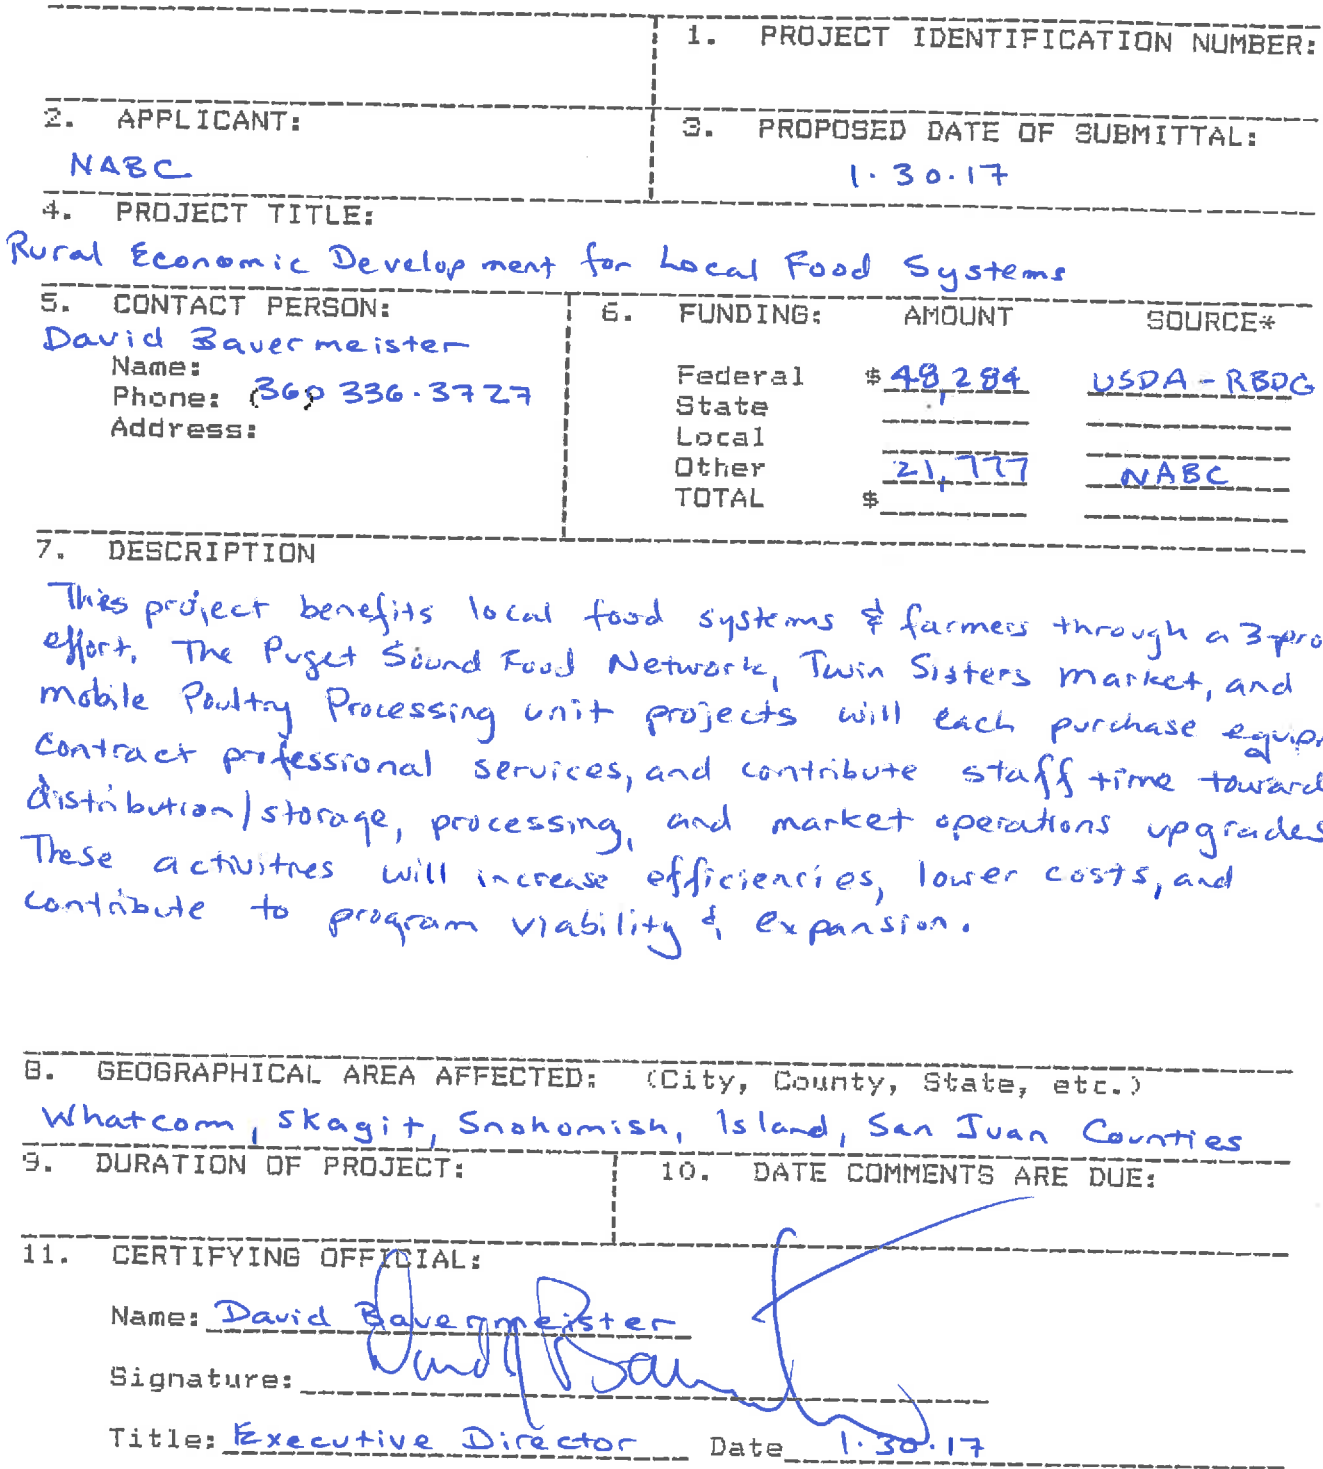 1. PROJECT IDENTIFICATION NUMBER:
2. APPLICANT:
NABC
3. PROPOSED DATE OF SUBMITTAL:
1.30.17
4. PROJECT TITLE:
Rural Economic Development for Local Food Systems
5. CONTACT PERSON:
David Bauermeister
Name:
Phone: (360) 336-3727
Address:
6. FUNDING: AMOUNT SOURCE*
Federal $ 48,284 USDA-RBDG
State
Local
Other 21,777 NABC
TOTAL $
7. DESCRIPTION
This project benefits local food systems & farmers through a 3-pro
effort. The Puget Sound Food Network, Twin Sisters market, and
mobile Poultry Processing unit projects will each purchase equip
contract professional services, and contribute staff time toward
distribution/storage, processing, and market operations upgrades
These activities will increase efficiencies, lower costs, and
contribute to program viability & expansion.
8. GEOGRAPHICAL AREA AFFECTED: (City, County, State, etc.)
Whatcom, Skagit, Snohomish, Island, San Juan Counties
9. DURATION OF PROJECT:
10. DATE COMMENTS ARE DUE:
11. CERTIFYING OFFICIAL:
Name: David Bauermeister
Signature:
Title: Executive Director Date 1.30.17